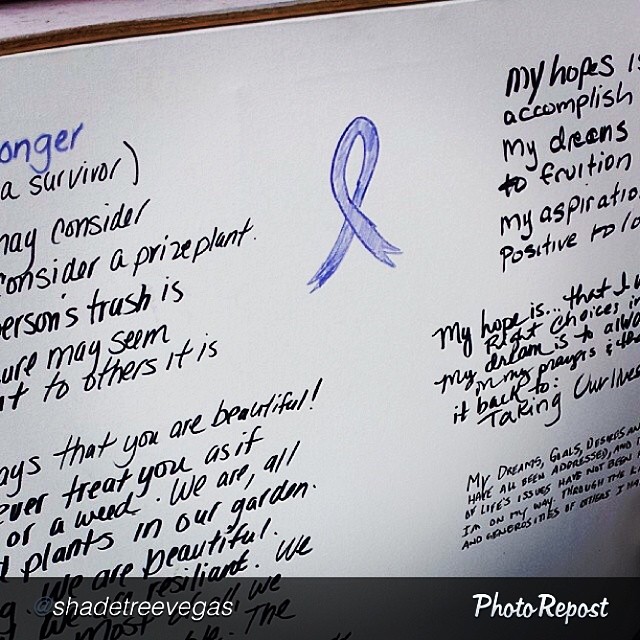 onger
a survivor)
may consider
consider a prize plant.
person's trash is
sure may seem
nt to others it is
ays that you are beautiful!
ever treat you as if
or a weed. We are, all
plants in our garden.
We are beautiful.
resilient. We
most of all we
The
My hopes is
accomplish
my dreams
to fruition
my aspiration
positive to
My hope is... that I
Right choices in
my dream is to always
in my prayers & the
it back to:
Taking Our lives
My Dreams, Goals, Desires an
have all been addressed, and
of life's issues have not been
I'm on my way. Through the
and generosities of others I ha
@shadetreevegas
PhotoRepost